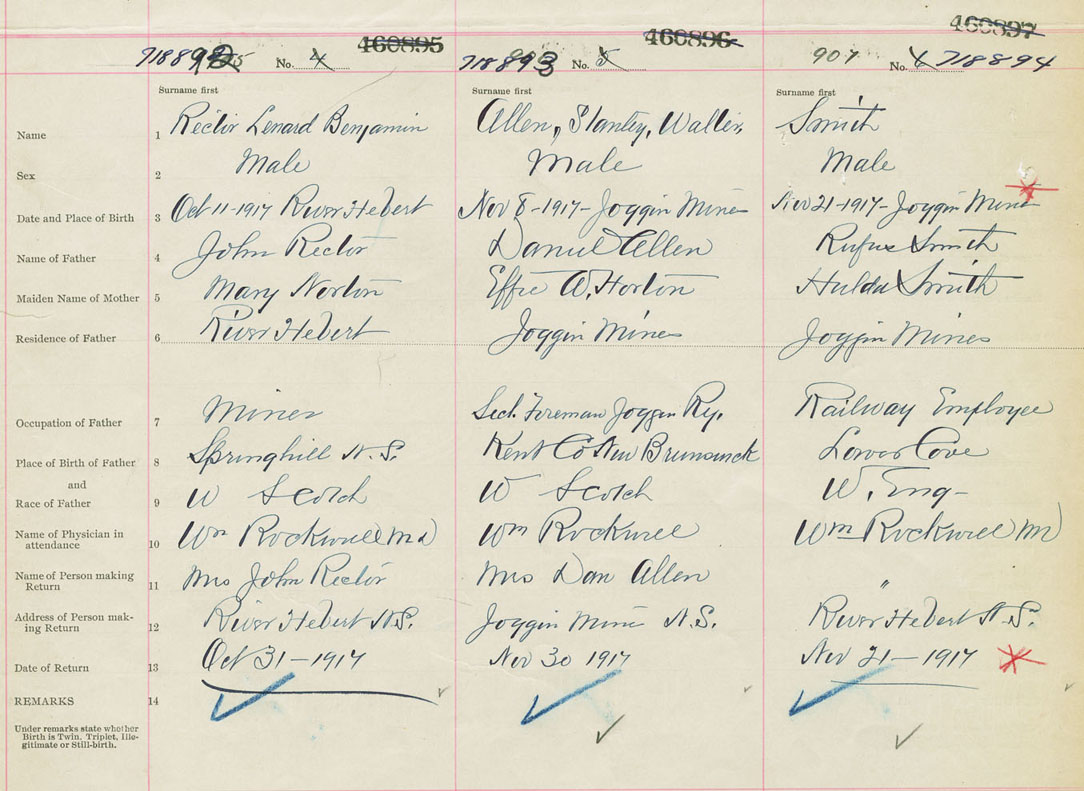 460895 460896 460897
718892 No. 4 718893 No. 5 907 No. 6 718894
Surname first Surname first Surname first
Name 1 Rector Lenard Benjamin Allen, Stanley, Walter, Smith
Sex 2 Male Male Male
Date and Place of Birth 3 Oct 11-1917 River Hebert Nov 8-1917-Joggin Mines Nov 21-1917-Joggin Mines
Name of Father 4 John Rector Daniel Allen Rufus Smith
Maiden Name of Mother 5 Mary Norton Effie A. Horton Hulda Smith
Residence of Father 6 River Hebert Joggin Mines Joggin Mines
Occupation of Father 7 Miner Sect. Foreman Joggin Ry. Railway Employee
Place of Birth of Father 8 Springhill N.S. Kent Co New Brunswick Lower Cove
and
Race of Father 9 W Scotch W Scotch W. Eng-
Name of Physician in
attendance 10 Wm Rockwell Md Wm Rockwell Wm Rockwell Md
Name of Person making
Return 11 Mrs John Rector Mrs Dan Allen "
Address of Person mak-
ing Return 12 River Hebert N.S. Joggin Mine N.S. River Hebert N.S.
Date of Return 13 Oct 31-1917 Nov 30 1917 Nov 21-1917
REMARKS 14
Under remarks state whether
Birth is Twin. Triplet, Ille-
gitimate or Still-birth.